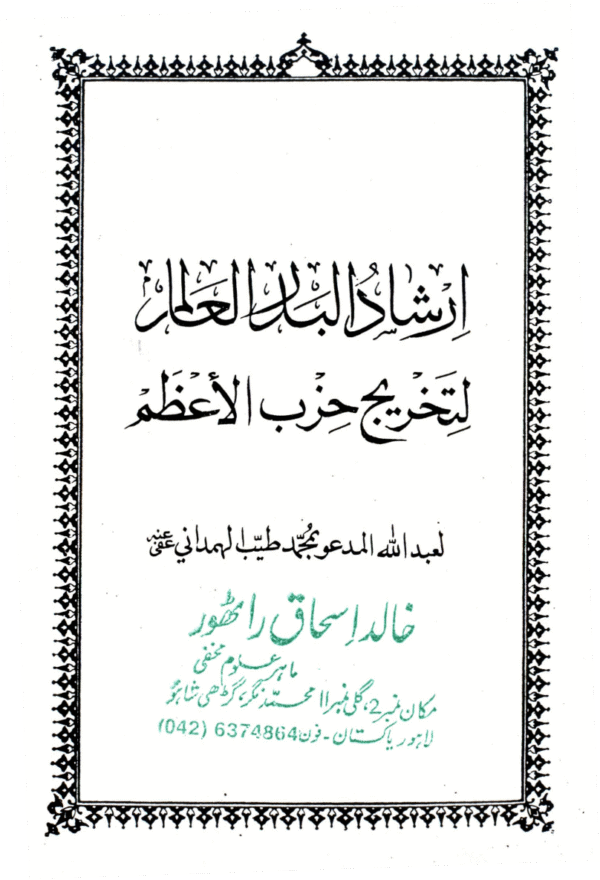 اِرْشَادُ البَارِ العَالِم
لِتَخْرِيج حِزْب الأَعْظَمْ
لعبد الله المدعو بمُحمّد طيّب الهمداني عفی عنہ
خالد اِسحاق راٹھور
ماہر علوم مخفی
مکان نمبر 2، گلی نمبر 11 محمّد نگر، گڑھی شاہو
لاہور پاکستان - فون (042) 6374864